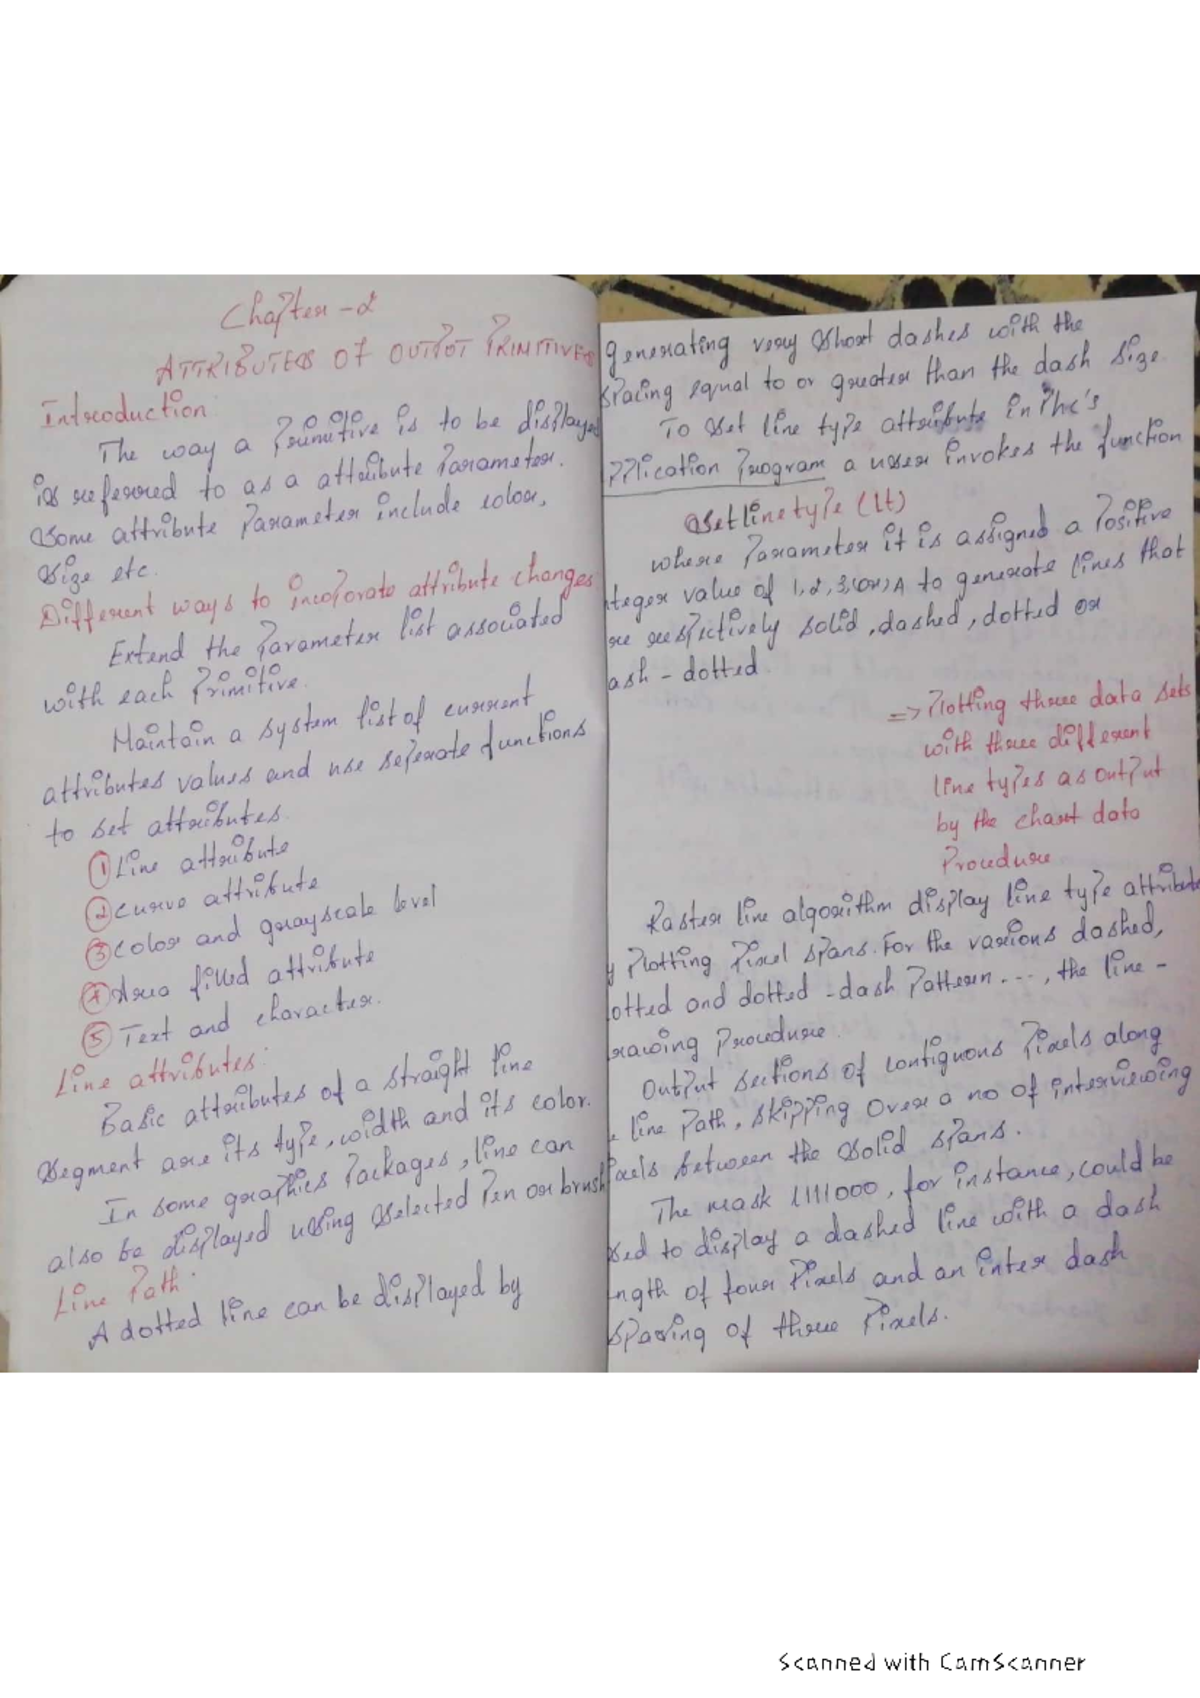 Chapter - 2
ATTRIBUTES OF OUTPUT PRIMITIVES
Introduction:
The way a primitive is to be displaye
is referred to as a attribute parameter.
Some attribute parameter include color,
size etc.
Different ways to incoporate attribute changes
Extend the parameter list associated
with each primitive.
Maintain a system list of current
attributes values and use seperate functions
to set attributes.
① Line attribute
② curve attribute
③ color and grayscale level
④ Area filled attribute
⑤ Text and character.
Line attributes:
Basic attributes of a straight line
segment are its type, width and its color.
In some graphics packages, line can
also be displayed using selected pen or brush
Line Path:
A dotted line can be displayed by
generating very short dashes with the
spacing equal to or greater than the dash size.
To set line type attribute in Phc's
pplication program a user invokes the function
setlinetype (lt)
where parameter it is assigned a positive
teger value of 1, 2, 3, (or), 4 to generate lines that
re respectively solid, dashed, dotted or
ash - dotted.
=> Plotting three data sets
with three different
line types as output
by the chart data
Procedure
Raster line algorithm display line type attribute
y plotting pixel spans. For the various dashed,
otted and dotted - dash pattern ..., the line -
rawing procedure.
Output sections of contiguous pixels along
e line path, skipping over a no of interviewing
ixels between the solid spans.
The mask 1111000, for instance, could be
sed to display a dashed line with a dash
ngth of four pixels and an inter dash
spacing of three pixels.
Scanned with CamScanner